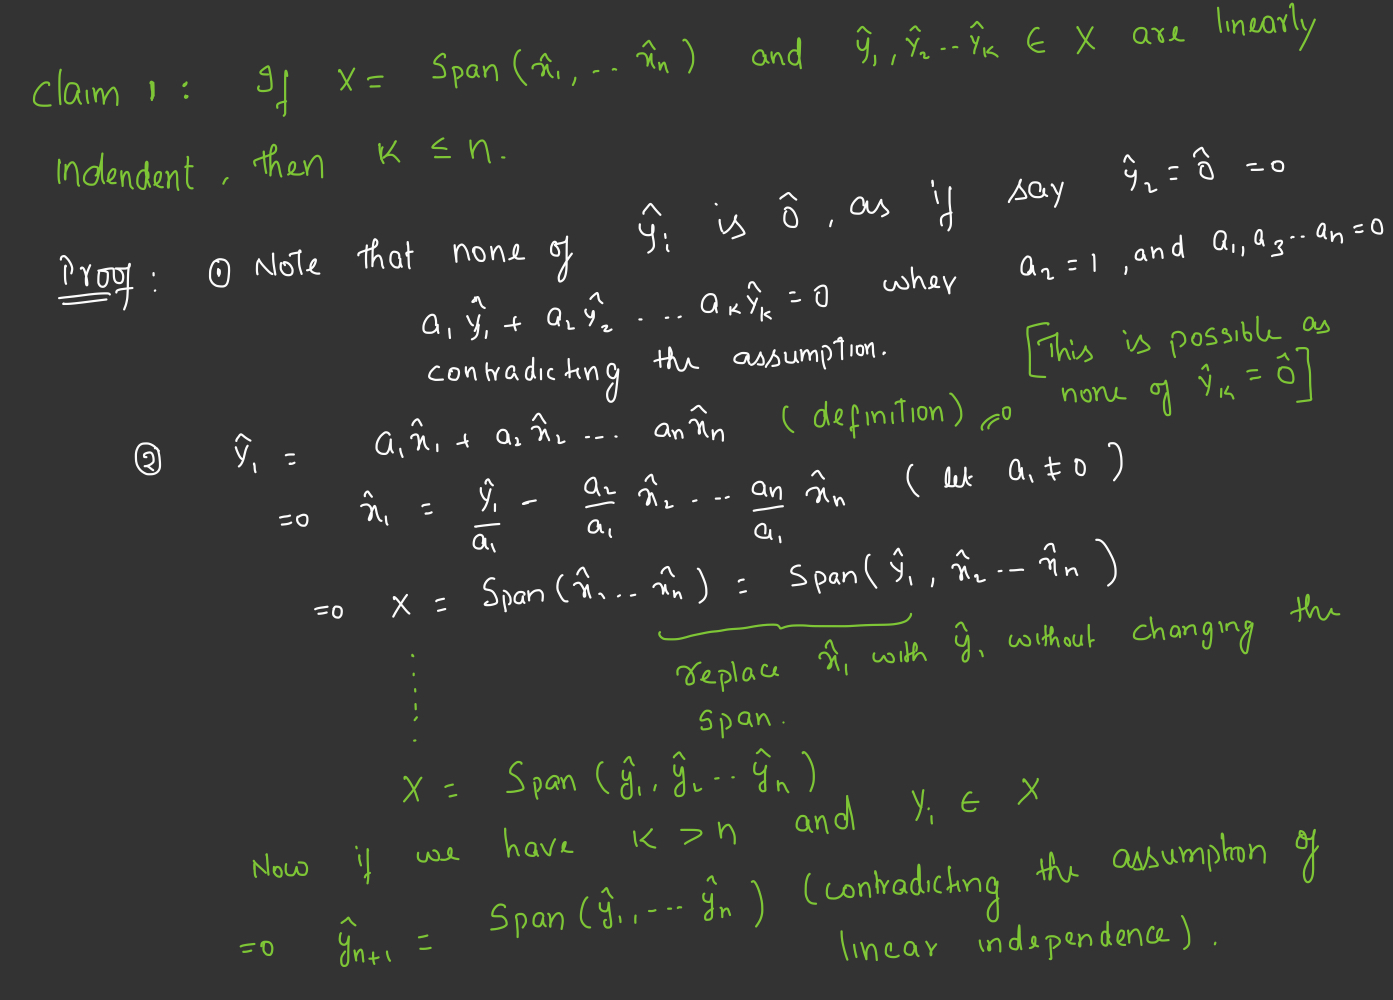 Claim 1 : If X = Span (x̂₁, .. x̂ₙ) and ŷ₁, ŷ₂ .. ŷₖ ∈ X are linearly
Indendent, then K ≤ n.
Proof : ① Note that none of ŷᵢ is 0̂, as if say ŷ₂ = 0̂ ⇒
a₁ŷ₁ + a₂ŷ₂ .... aₖŷₖ = 0 wher a₂ = 1, and a₁, a₃ .. aₙ = 0
contradicting the assumption.
[This is possible as
none of ŷₖ = 0̂]
② ŷ₁ = a₁x̂₁ + a₂x̂₂ ... aₙx̂ₙ (definition) ⇒
⇒ x̂₁ = ŷ₁/a₁ - a₂/a₁ x̂₂ ... aₙ/a₁ x̂ₙ (let a₁ ≠ 0)
⇒ X = Span (x̂₁ .. x̂ₙ) = Span (ŷ₁, x̂₂ -- x̂ₙ)
replace x̂₁ with ŷ₁ without changing the
span.
X = Span (ŷ₁, ŷ₂ .. ŷₙ)
Now if we have K > n and yᵢ ∈ X
⇒ ŷₙ₊₁ = Span (ŷ₁, ... ŷₙ) (contradicting the assumption of
linear independence).